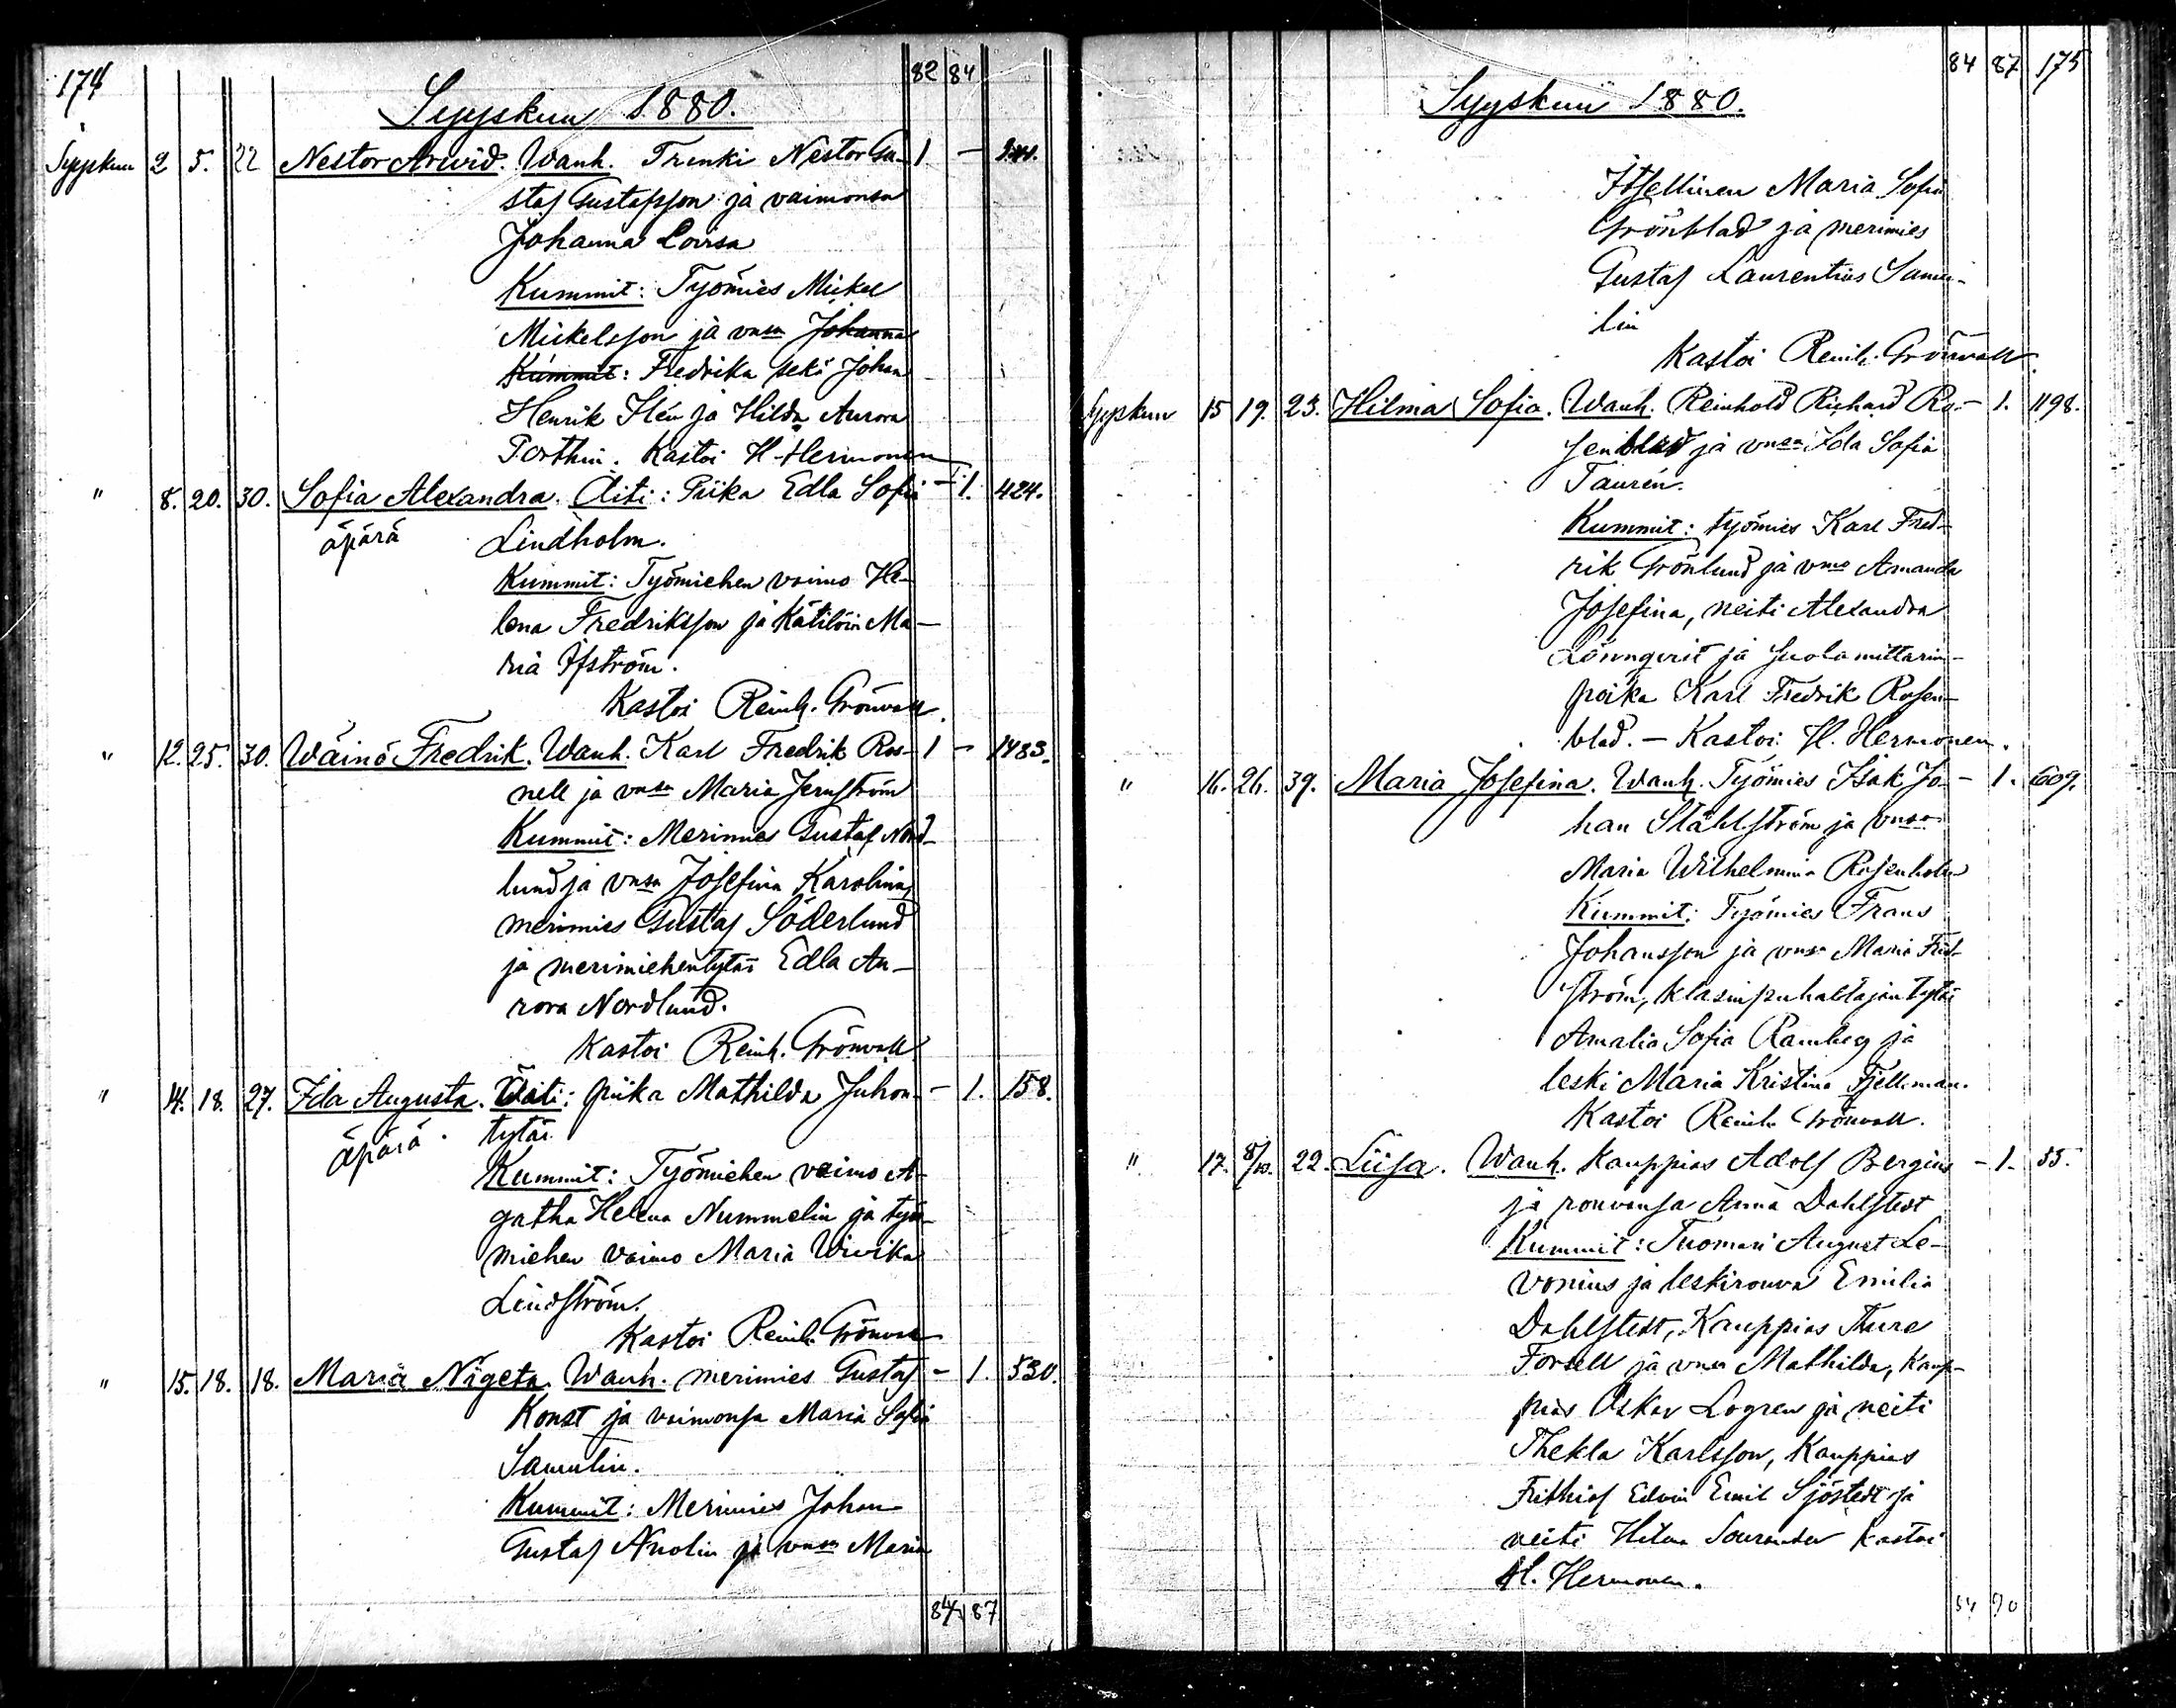 174 82 84
Syyskuu 1880.
Syyskuu 2 5. 22 Nestor Arwid. Wanh. Trenki Nestor Gu- 1 -
staf Gustafsson ja vaimonsa
Johanna Lovisa
Kummit: Työmies Mickel
Mickelsson ja vnsa Johanna
Kummit: Fredrika sekä Johan
Henrik Hén ja Hilda Aurora
Porthin. Kastoi H. Hermonen
" 8. 20. 30. Sofia Alexandra. Äiti: Piika Edla Sofia - 1. 424.
äpärä Lindholm.
Kummit: Työmiehen vaimo He-
lena Fredriksson ja Kätilöin Ma-
ria Öfström.
Kastoi Reinh. Grönvall.
" 12. 25. 30. Wäinö Fredrik. Wanh. Karl Fredrik Ros- 1 - 1483.
nell ja vnsa Maria Jernström
Kummit: Merimies Gustaf Nord-
lund ja vnsa Josefina Karolina,
merimies Gustaf Söderlund
ja merimiehentytär Edla Au-
rora Nordlund.
Kastoi Reinh. Grönvall
" 14. 18. 27. Ida Augusta. Äiti: piika Mathilda Juhon- - 1. 158.
äpärä. tytär
Kummit: Työmiehen vaimo A-
gatha Helena Nummelin ja työ-
miehen vaimo Maria Wivika
Lindström.
Kastoi Reinh. Grönvall
" 15. 18. 18. Maria Nigeta. Wanh. merimies Gustaf - 1. 530.
Konst ja vaimonsa Maria Sofia
Samulin.
Kummit: Merimies Johan
Gustaf Nuolin ja vnsa Maria
84 87
84 87 175
Syyskuu 1880.
Itsellinen Maria Sofia
Grönblad ja merimies
Gustaf Laurentius Samu-
lin
Kastoi Reinh. Grönvall.
Syyskuu 15 19. 23. Hilma Sofia. Wanh. Reinhold Richard Ro- - 1. 1198.
senblad ja vnsa Ida Sofia
Taurén.
Kummit: työmies Karl Fred-
rik Grönlund ja vmo Amanda
Josefina, neiti Alexandra
Lönnqvist ja Suolamittarin-
poika Karl Fredrik Rosen-
blad. - Kastoi H. Hermonen.
" 16. 26. 39. Maria Josefina. Wanh. Työmies Isak Jo- - 1. 609.
han Ståhlström ja vnsa
Maria Wilhelmina Rosenholm
Kummit: Työmies Frans
Johansson ja vnsa Maria Fred-
ström, klasinpuhaltajan tytär
Amalia Sofia Ramberg ja
leski Maria Kristina Fjellman.
Kastoi Reinh. Grönvall.
" 17. 8/10. 22. Liisa. Wanh. Kauppias Adolf Bergius - 1. 55.
ja rouvansa Anna Dahlstedt
Kummit: Tuomari August Le-
vonius ja leskirouva Emilia
Dahlstedt, Kauppias Thure
Forsell ja vnsa Mathilda, Kaup-
pias Oskar Logren ja neiti
Thekla Karlsson, Kauppias
Frithiof Edvin Emil Sjöstedt ja
neiti Hilma Sourander Kastoi
H. Hermonen.
84 90